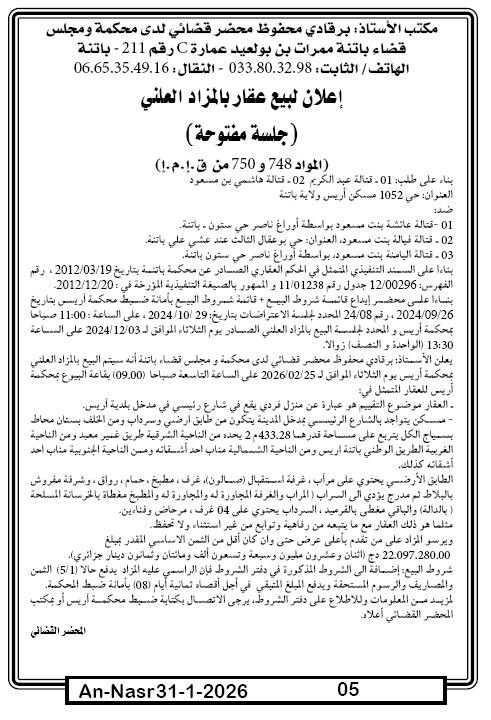 مكتب الأستاذ: برقادي محفوظ محضر قضائي لدى محكمة ومجلس
قضاء باتنة ممرات بن بولعيد عمارة C رقم 211 - باتنة
الهاتف/ الثابت: 033.80.32.98 - النقال: 06.65.35.49.16
إعلان لبيع عقار بالمزاد العلني
(جلسة مفتوحة)
(المواد 748 و 750 من ق.إ.م.إ)
بناء على طلب: 01 ـ قتالة عبد الكريم 02 ـ قتالة هاشمي بن مسعود
العنوان: حي 1052 مسكن أريس ولاية باتنة
ضد:
01 -قتالة عائشة بنت مسعود بواسطة أوراغ ناصر حي ستون ـ باتنة.
02 ـ قتالة فيالة بنت مسعود، العنوان: حي بوعقال الثالث عند عشي علي باتنة.
03 ـ قتالة اليامنة بنت مسعود، بواسطة أوراغ ناصر حي ستون باتنة.
بناءا على السند التنفيذي المتمثل في الحكم العقاري الصادر عن محكمة باتنة بتاريخ 2012/03/19 ، رقم
الفهرس: 12/00296 جدول رقم 11/01238 و الممهور بالصيغة التنفيذية المؤرخة في : 2012/12/20.
بناءا على محضر إيداع قائمة شروط البيع + قائمة شروط البيع بأمانة ضبط محكمة أريس بتاريخ
2024/09/26 ، رقم 24/08 المحدد لجلسة الاعتراضات بتاريخ: 29 /10/ 2024 ، على الساعة : 11:00 صباحا
بمحكمة أريس و المحدد لجلسة البيع بالمزاد العلني الصادر يوم الثلاثاء الموافق لـ 2024/12/03 على الساعة
13:30 (الواحدة و النصف) زوالا.
يعلن الأستاذ: برقادي محفوظ محضر قضائي لدى محكمة و مجلس قضاء باتنة أنه سيتم البيع بالمزاد العلني
بمحكمة أريس يوم الثلاثاء الموافق لـ 2026/02/25 على الساعة التاسعة صباحا (09.00) بقاعة البيوع بمحكمة
أريس للعقار المتمثل في:
ـ العقار موضوع التقييم هو عبارة عن منزل فردي يقع في شارع رئيسي في مدخل بلدية أريس.
- مسكن يتواجد بالشارع الرئيسي بمدخل المدينة يتكون من طابق ارضي وسرداب ومن الخلف بستان محاط
بسياج الكل يتربع على مساحة قدرها 433.28م 2 يحده من الناحية الشرقية طريق غير معبد ومن الناحية
الغربية الطريق الوطني باتنة اريس ومن الناحية الشمالية مناب احد أشقائه ومن الناحية الجنوبية مناب احد
أشقائه كذلك.
الطابق الأرضي يحتوي على مرآب ، غرفة استقبال (صالون)، غرف ، مطبخ ، حمام ، رواق ، وشرفة مفروش
بالبلاط ثم مدرج يؤدي الى السراب ( المراب والغرفة المجاورة له والمجاورة له والمطبخ مغطاة بالخرسانة المسلحة
( بالدالة) والباقي مغطى بالقرميد ، السرداب يحتوي على 04 غرف ، مرحاض وفناءين.
مثلما هو ذلك العقار مع ما يتبعه من رفاهية وتوابع من غير استثناء ولا تحفظ.
ويرسو المزاد على من تقدم بأعلى عرض حتى وان كان أقل من الثمن الاساسي المقدر بمبلغ
22.097.280.00 دج (اثنان وعشرون مليون وسبعة وتسعون ألف ومائتان وثمانون دينار جزائري).
شروط البيع: إضافة الى الشروط المذكورة في دفتر الشروط فإن الراسي عليه المزاد يدفع حالا (5/1) الثمن
والمصاريف والرسوم المستحقة ويدفع المبلغ المتبقي في أجل أقصاه ثمانية أيام (08) بأمانة ضبط المحكمة.
لمزيد من المعلومات وللاطلاع على دفتر الشروط، يرجى الاتصال بكتابة ضبط محكمة أريس أو بمكتب
المحضر القضائي أعلاه.
المحضر القضائي
An-Nasr31-1-2026 05